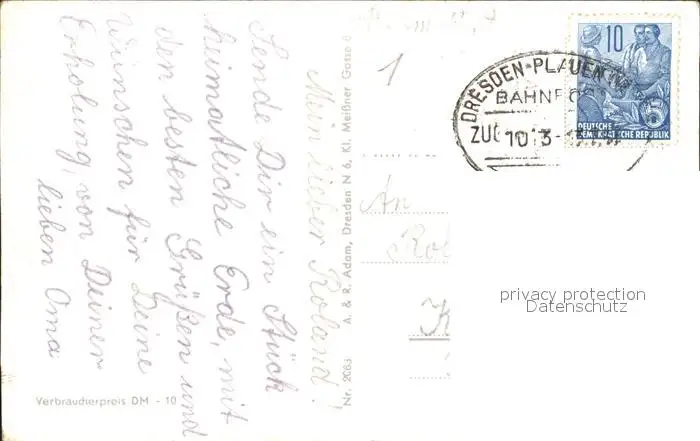 Mein lieber Roland!
Sende Dir ein Stück
heimatliche Erde, mit
den besten Grüßen und
Wünschen für Deine
Erholung, von Deiner
lieben Oma
Verbraucherpreis DM - 10
Nr. 2063 A. & R. Adam, Dresden N 6, Kl. Meißner Gasse
1
An
DRESDEN-PLAUEN
BAHNPOST
ZUG
10
DEUTSCHE
DEMOKRATISCHE REPUBLIK
5
privacy protection
Datenschutz